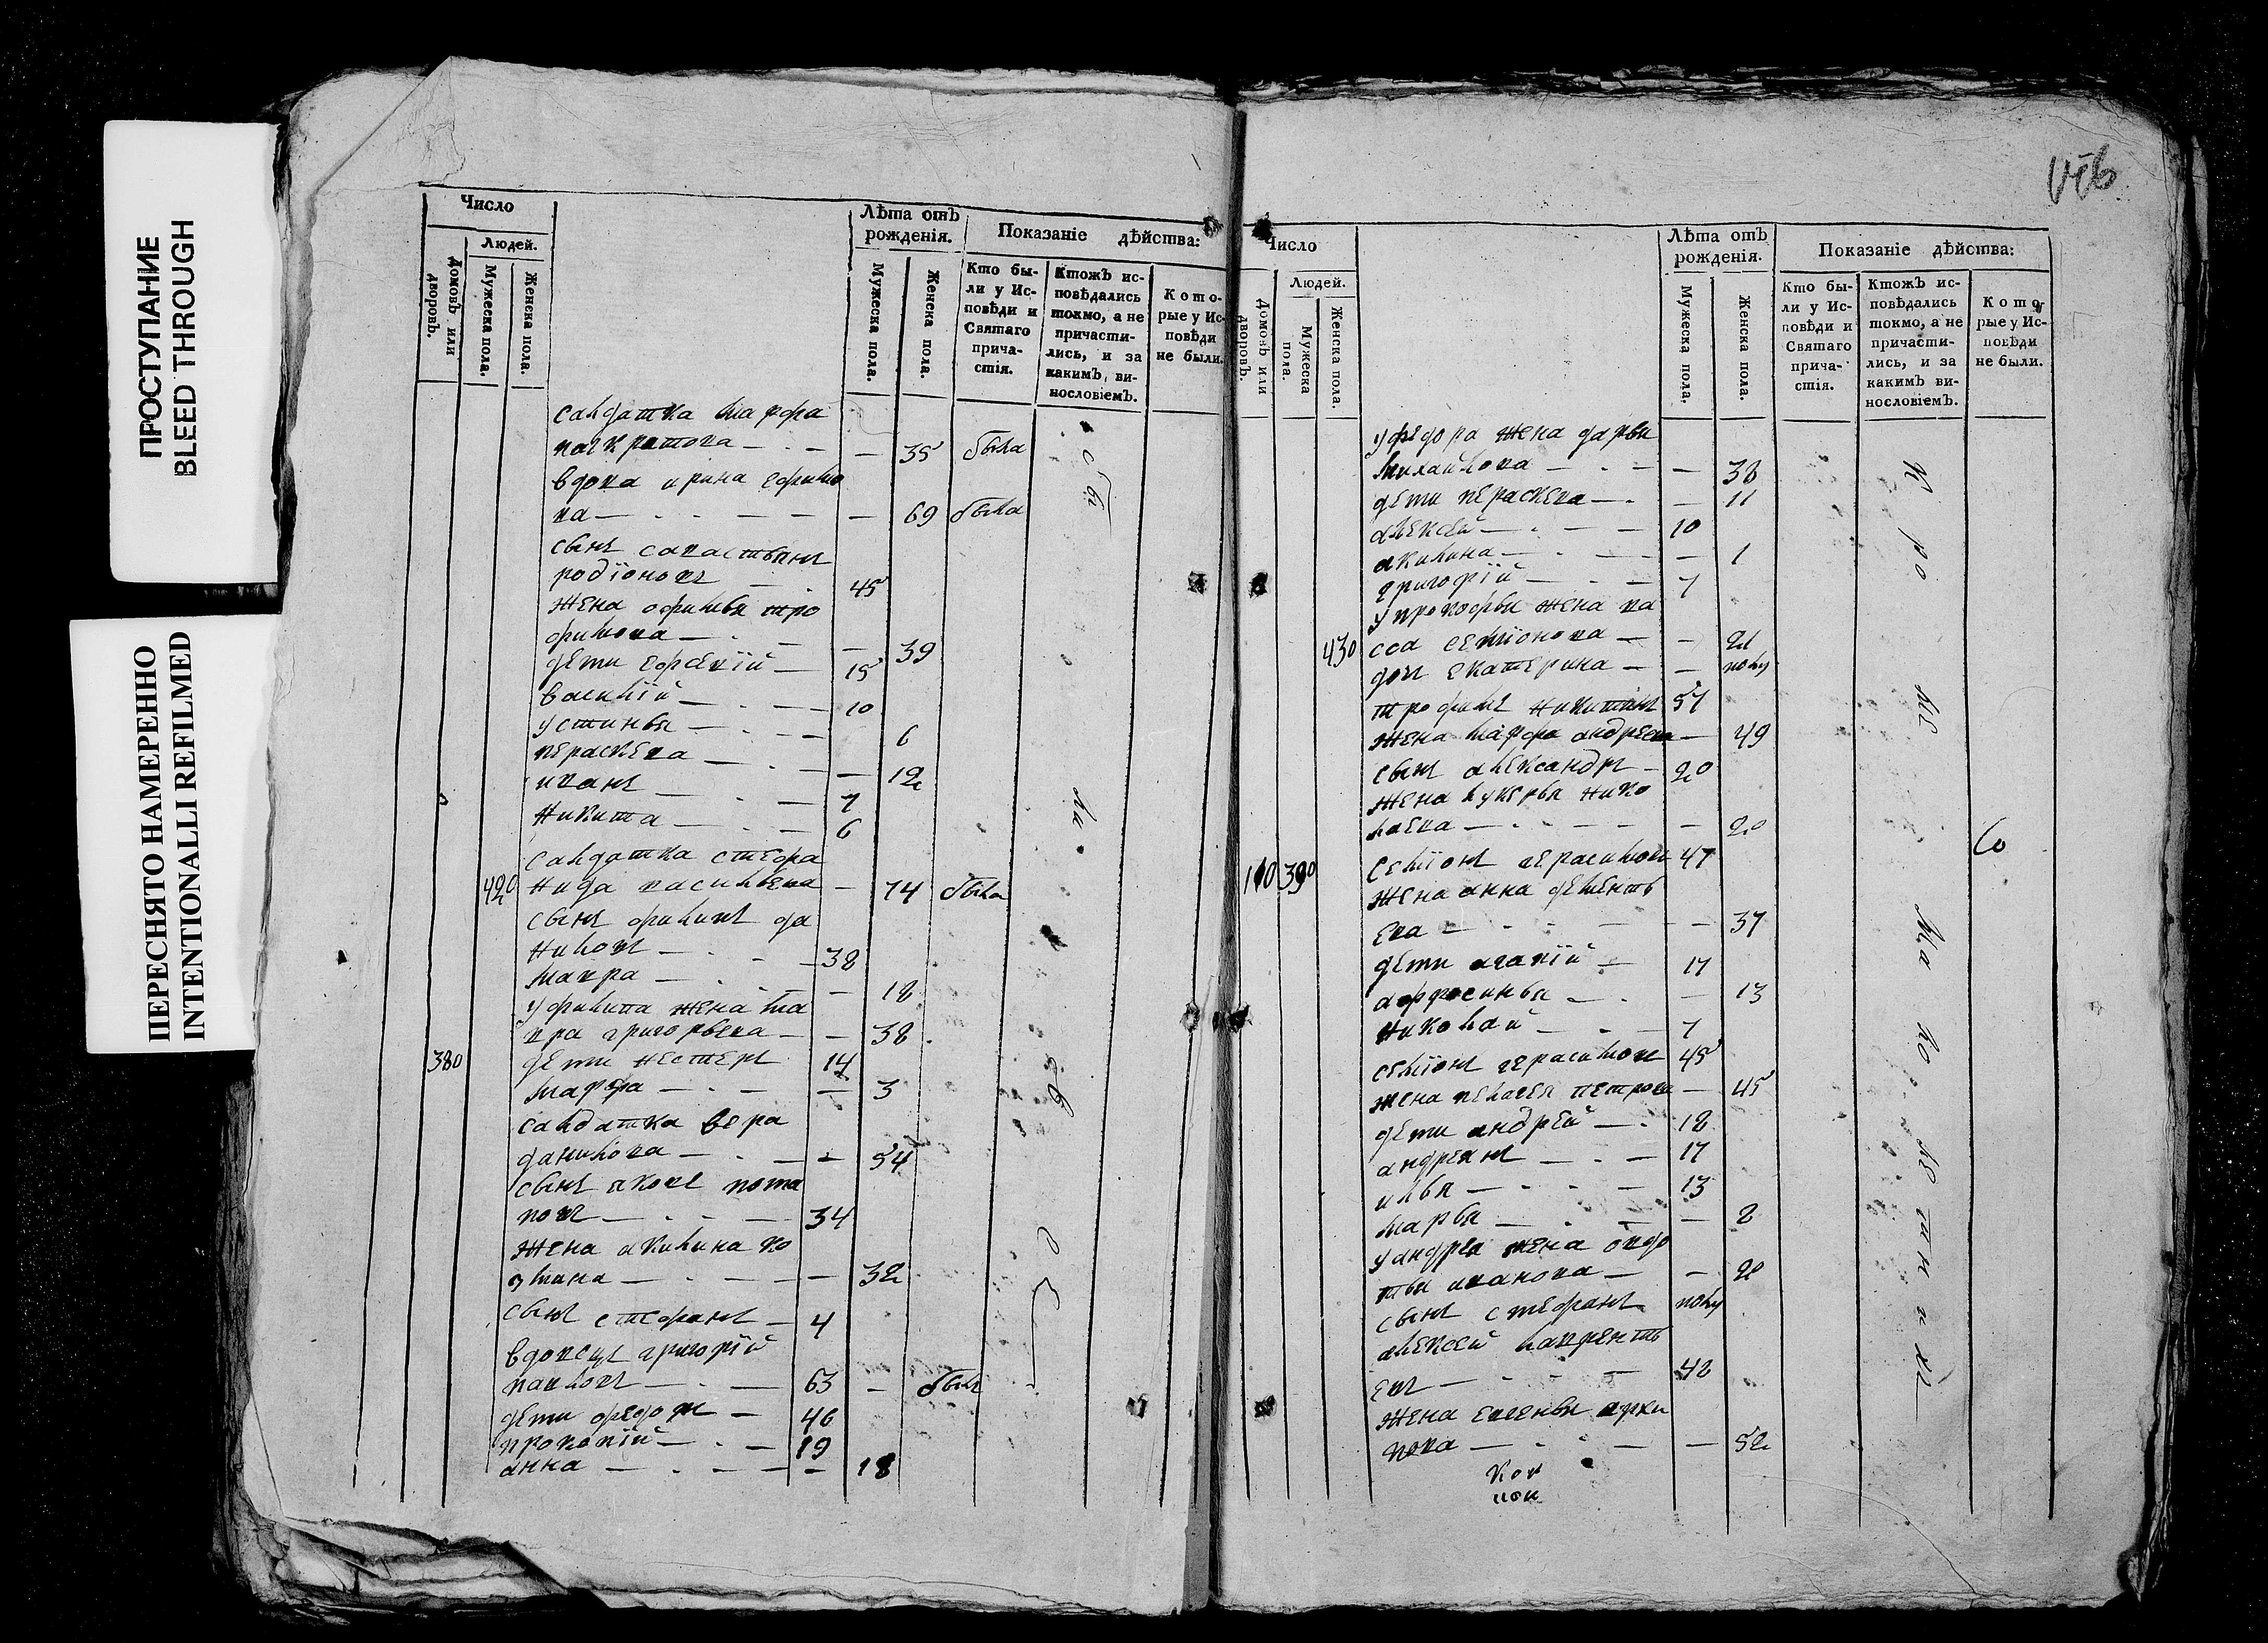 ПРОСТУПАНИЕ
BLEED THROUGH
ПЕРЕСНЯТО НАМЕРЕННО
INTENTIONALLI REFILMED
Число
Людей.
Домовъ или дворовъ.
Мужеска пола.
Женска пола.
Лѣта отъ рожденія.
Мужеска пола.
Женска пола.
Показаніе дѣйства:
Кто бы-
ли у Ис-
повѣди и
Святаго
прича-
стія.
Ктожъ ис-
повѣдались
токмо, а не
причасти-
лись, и за
какимъ ви-
нословіемъ.
Кото-
рые у Ис-
повѣди
не были.
салдатка марфа
панкратова 35 была
вдова ирина ефимо
ва 69 была
сынъ савастьянъ
родіоновъ 45
жена офимья тро
фимова 39
дети ефвній 15
василій 10
устинья 6
перасвева 12
иванъ 7
никита 6
салдатка стефа
420 нида васильева 74 была
сынъ филипъ да
ниловъ 38
мавра 18
у филипа жена ма
вра григорьева 38
380 дети нестеръ 14
марфа 3
салдатка вера
данилова 54
сынъ яковъ пота
повъ 34
жена акилина ко
змина 32
сынъ стефанъ 4
вдовецъ григорій
павловъ 63 былъ
дети федоръ 46
прокопій 19
анна 18
Число
Людей.
Домовъ или дворовъ.
Мужеска пола.
Женска пола.
Лѣта отъ рожденія.
Мужеска пола.
Женска пола.
Показаніе дѣйства:
Кто бы-
ли у Ис-
повѣди и
Святаго
прича-
стія.
Ктожъ ис-
повѣдались
токмо, а не
причасти-
лись, и за
какимъ ви-
нословіемъ.
Кото-
рые у Ис-
повѣди
не были.
у федора жена дарья
михайлова 38
дети перасвева 11
алексей 10
акилина 1
григорій 7
у прокофья жена ва
430 сса семіонова 21
дочь екатерина полу
трофимъ никитинъ 57
жена марфа андреева 49
сынъ александръ 20
жена лукерья нико
лаева 20
110 390 семіонъ герасимовъ 47
жена анна дементь
ева 37
дети агапій 17
аффросинья 13
николай 7
семіонъ герасимовъ 45
жена пелагея петрова 45
дети андрей 18
андреянъ 17
илья 13
марья 2
у андрея жена овдо
тья иванова 20
сынъ стефанъ полу
алексей лаврентъ
евъ 42
жена евгенья архи
пова 52
со
малолетними